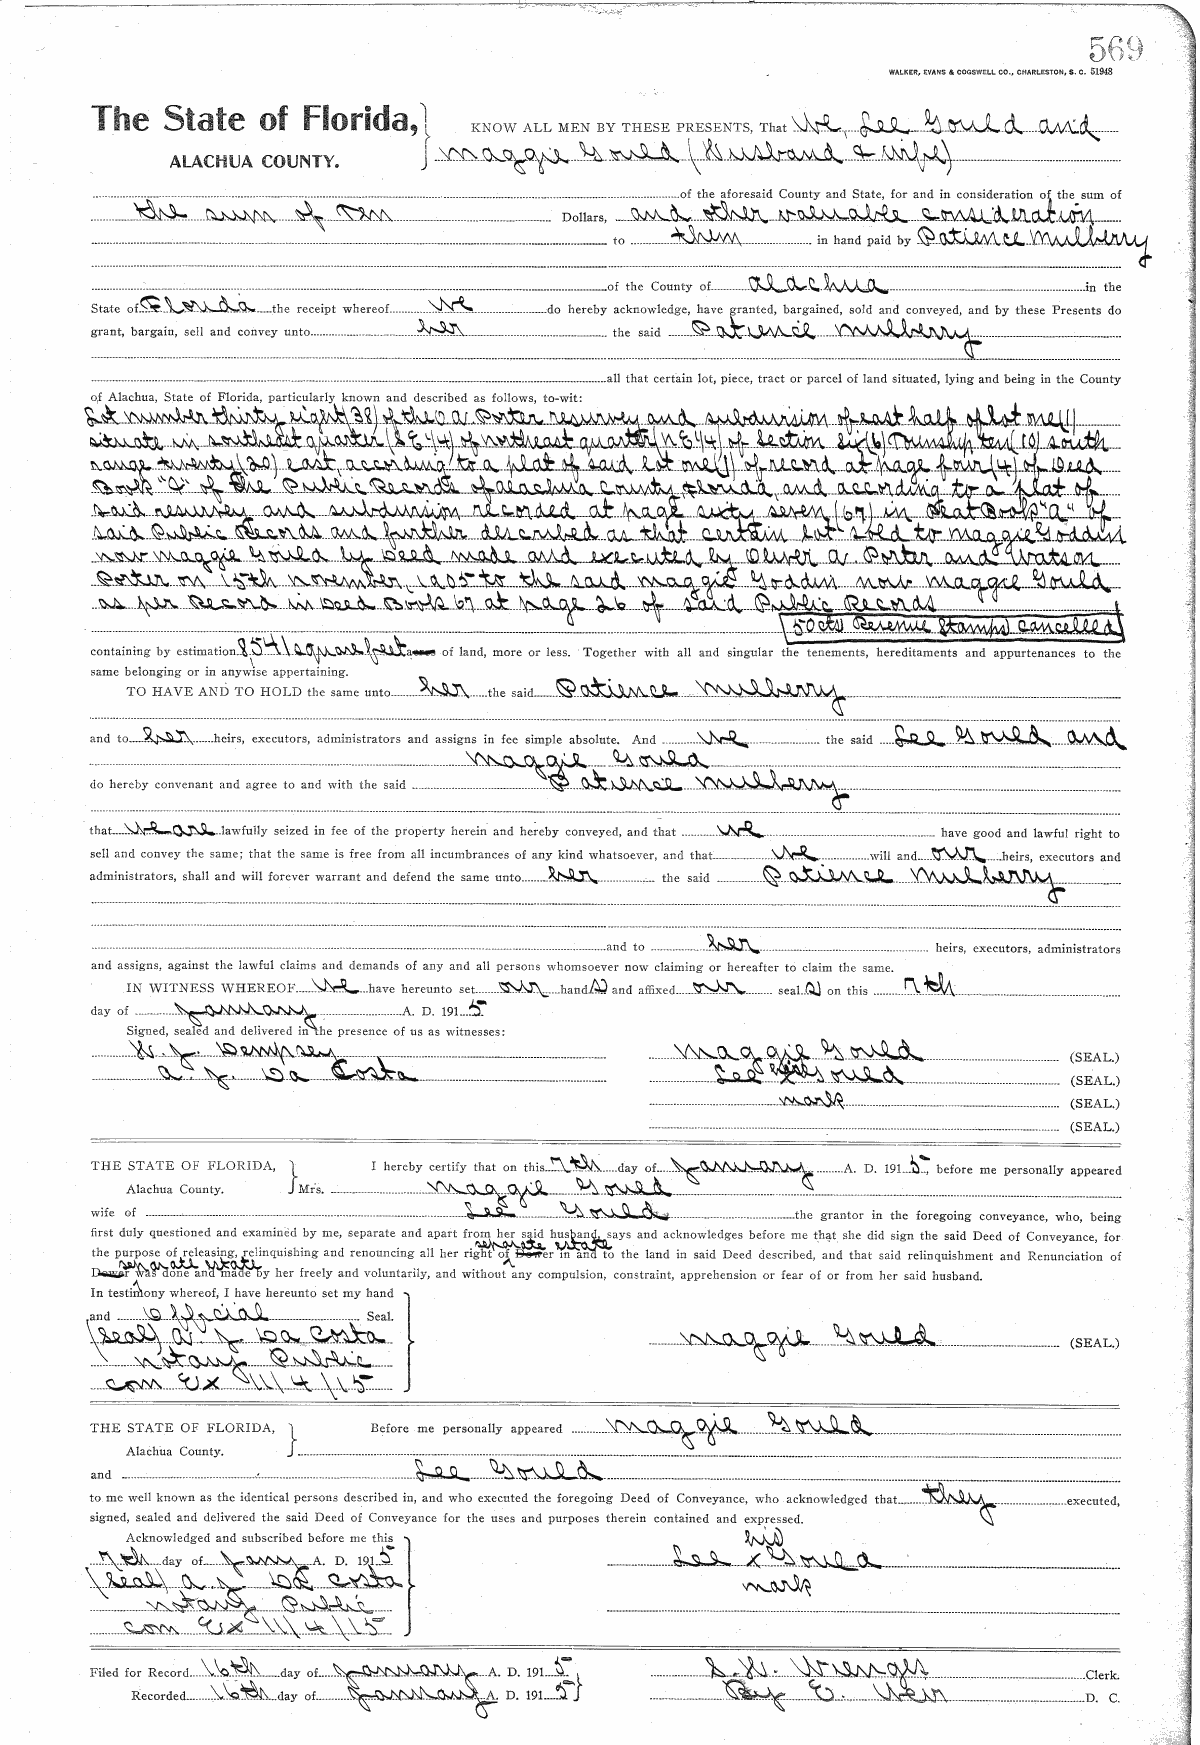 569
WALKER, EVANS & COGSWELL CO., CHARLESTON, S. C. 51948
The State of Florida, KNOW ALL MEN BY THESE PRESENTS, That We, Lee Gould and
ALACHUA COUNTY. Maggie Gould (Husband & wife)
of the aforesaid County and State, for and in consideration of the sum of
the sum of Ten Dollars, and other valuable consideration
to them in hand paid by Patience Mulberry
of the County of Alachua in the
State of Florida the receipt whereof we do hereby acknowledge, have granted, bargained, sold and conveyed, and by these Presents do
grant, bargain, sell and convey unto her the said Patience Mulberry
all that certain lot, piece, tract or parcel of land situated, lying and being in the County
of Alachua, State of Florida, particularly known and described as follows, to-wit:
Lot number thirty eight (38) of the O A Porter resurvey and subdivision of east half of lot one (1)
situate in southeast quarter (SE 1/4) of northeast quarter (NE 1/4) of Section six (6) Township ten (10) south
range twenty (20) east, according to a plat of said lot one (1) of record at page four (4) of Deed
Book of the Public Records of Alachua County Florida, and according to a plat of
said resurvey and subdivision recorded at page sixty seven (67) in Plat Book "A" of
said Public Records and further described as that certain lot sold to Maggie Goddin
now Maggie Gould by Deed made and executed by Oliver A. Porter and Watson
Porter on 15th November, 1905 to the said Maggie Goddin now Maggie Gould
as per Record in Deed Book 67 at page 26 of said Public Records
50cts Revenue Stamps cancelled
containing by estimation 8541 square feet of land, more or less. Together with all and singular the tenements, hereditaments and appurtenances to the
same belonging or in anywise appertaining.
TO HAVE AND TO HOLD the same unto her the said Patience Mulberry
and to her heirs, executors, administrators and assigns in fee simple absolute. And we the said Lee Gould and
Maggie Gould
do hereby convenant and agree to and with the said Patience Mulberry
that we are lawfully seized in fee of the property herein and hereby conveyed, and that we have good and lawful right to
sell and convey the same; that the same is free from all incumbrances of any kind whatsoever, and that we will and our heirs, executors and
administrators, shall and will forever warrant and defend the same unto her the said Patience Mulberry
and to her heirs, executors, administrators
and assigns, against the lawful claims and demands of any and all persons whomsoever now claiming or hereafter to claim the same.
IN WITNESS WHEREOF We have hereunto set our hand(s) and affixed our seal(s) on this 7th
day of January A. D. 1915
Signed, sealed and delivered in the presence of us as witnesses:
W. J. Dempsey Maggie Gould (SEAL.)
A. J. Da Costa Lee his x Gould (SEAL.)
mark (SEAL.)
(SEAL.)
THE STATE OF FLORIDA, I hereby certify that on this 7th day of January A. D. 1915, before me personally appeared
Alachua County. Mrs. Maggie Gould
wife of Lee Gould the grantor in the foregoing conveyance, who, being
first duly questioned and examined by me, separate and apart from her said husband, says and acknowledges before me that she did sign the said Deed of Conveyance, for
separate estate
the purpose of releasing, relinquishing and renouncing all her right of Dower in and to the land in said Deed described, and that said relinquishment and Renunciation of
separate estate
Dower was done and made by her freely and voluntarily, and without any compulsion, constraint, apprehension or fear of or from her said husband.
In testimony whereof, I have hereunto set my hand
and Official Seal.
(Seal) A J Da Costa Maggie Gould (SEAL.)
Notary Public
Com Ex 11/4/15
THE STATE OF FLORIDA, Before me personally appeared Maggie Gould
Alachua County.
and Lee Gould
to me well known as the identical persons described in, and who executed the foregoing Deed of Conveyance, who acknowledged that they executed,
signed, sealed and delivered the said Deed of Conveyance for the uses and purposes therein contained and expressed.
Acknowledged and subscribed before me this his
7th day of Jany A. D. 1915 Lee x Gould
(Seal) A. J Da Costa mark
Notary Public
Com Ex 11/4/15
Filed for Record 16th day of January A. D. 1915 S. H. Wienges Clerk.
Recorded 16th day of January A. D. 1915 By E. Weir D. C.